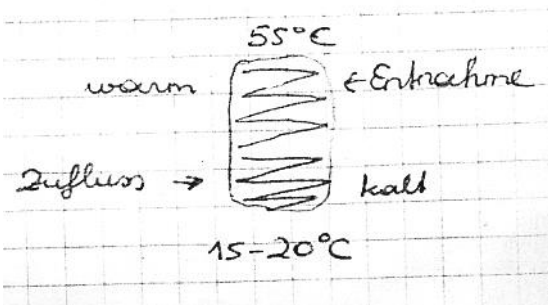 55°C
warm ← Entnahme
Zufluss → kalt
15-20°C